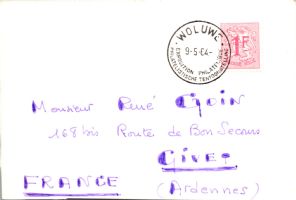 WOLUWE
9-5-64-
EXPOSITION PHILATELIQUE
PHILATELISTISCHE TENTOONSTELLING
1F
Monsieur René Goin
168 bis Route de Bon Secours
GIVET
FRANCE (Ardennes)